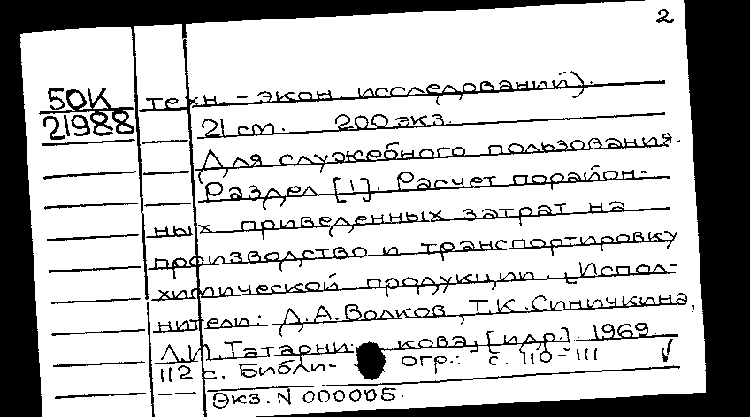 2
50К техн. - экон. исследований).
21988 21 cm. 200 экз.
Для служебного пользования.
Раздел [1]. Расчет порайон-
ных приведенных затрат на
производство и транспортировку
химической продукции. [Испол-
нители: Д.А.Волков, Т.К.Синичкина,
Л.И.Татарникова, [и др.] 1969
112 с. Библиогр.: с. 110-111
Экз. N 000005.